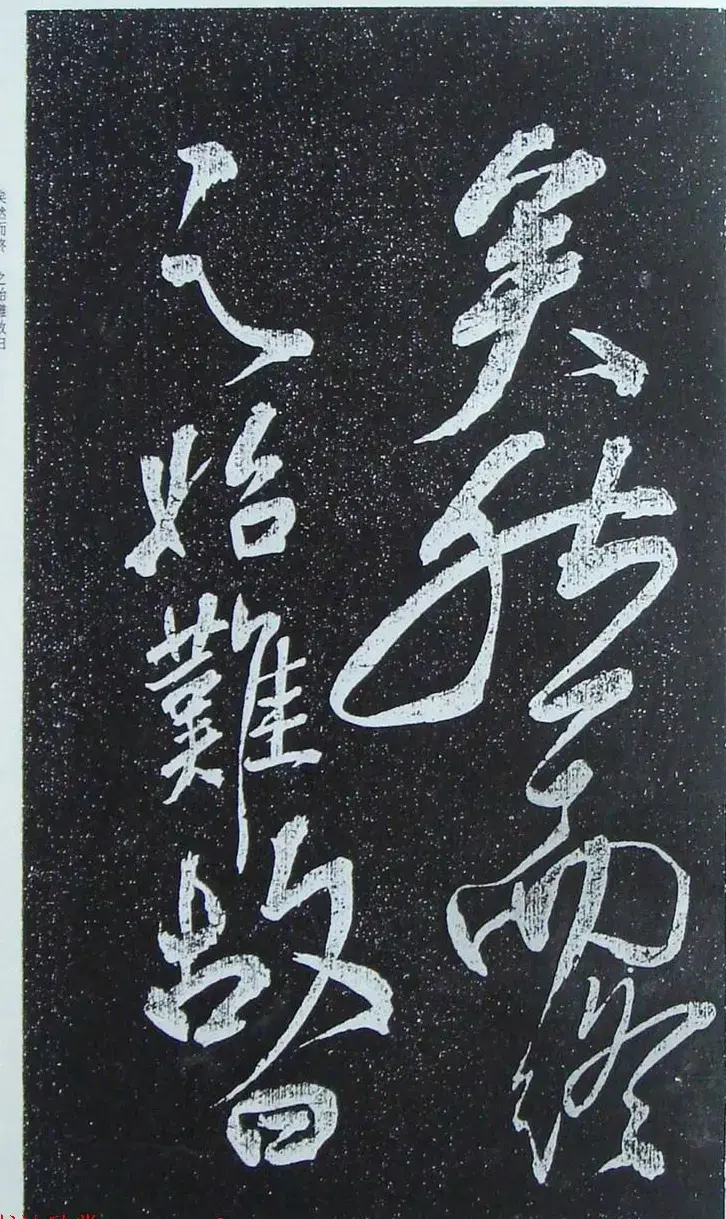 矣然而終
之始難故曰
矣然而終　之始難故曰